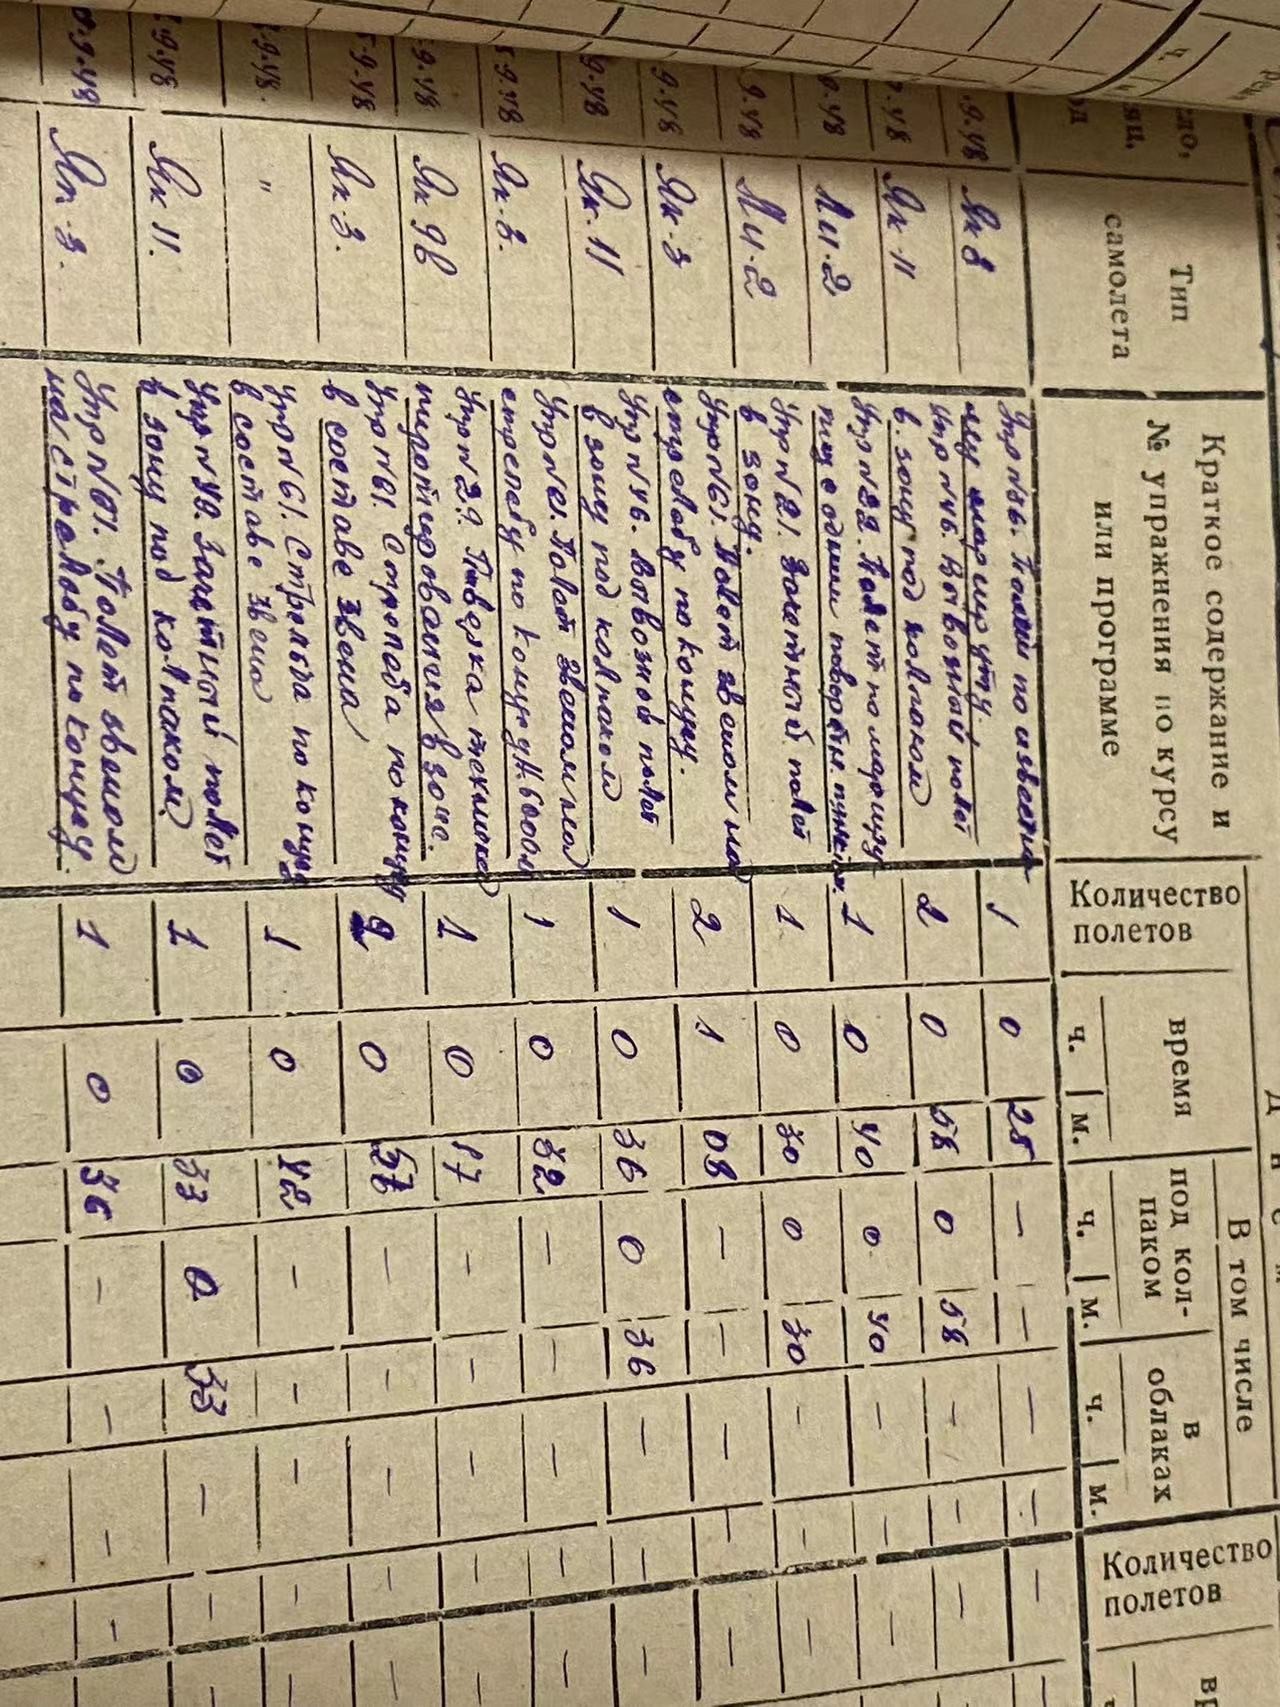 Тип
самолета
Краткое содержание и
№ упражнения по курсу
или программе
Количество
полетов
время
ч. м.
В том числе
под кол-
паком
ч. м.
в
облаках
ч. м.
Количество
полетов
9.48 Як 8 Упр N 36. Полет по известно-
му маршруту 1 0 25 — — — —
9.48 Як 11 Упр N 46. Вывозный полет
в зону под колпаком 2 0 58 0 58 — —
9.48 Ли-2 Упр N 22. Полет по маршру
с одним поворотн. пунктом. 1 0 40 0 40 — —
9.48 Ли-2 Упр N 21. Зачетный полет
в зону. 1 0 30 0 30 — —
9.48 Як-3 Упр N 61. Полет звеном на
стрельбу по конусу. 2 1 08 — — — —
9.48 Як-11 Упр N 46. Вывозной полет
в зону под колпаком 1 0 36 0 36 — —
5.9.48 Як-3. Упр N 61. Полет звеном на
стрельбу по конусу 6000м 1 0 32 — — — —
9.48 Як 9В Упр N 29. Проверка техники
пилотирования в зоне. 1 0 17 — — — —
9.48 Як-3. Упр N 61. Стрельба по конусу
в составе звена 2 0 — — — —
9.48. " Упр N 61. Стрельба по конусу
в составе звена 1 0 42 — — — —
9.48 Як 11. Упр N 40. Зачетный полет
в зону под колпаком. 1 0 33 0 33 — —
9.48 Як-3. Упр N 61. Полет звеном
на стрельбу по конусу. 1 0 36 — — — —